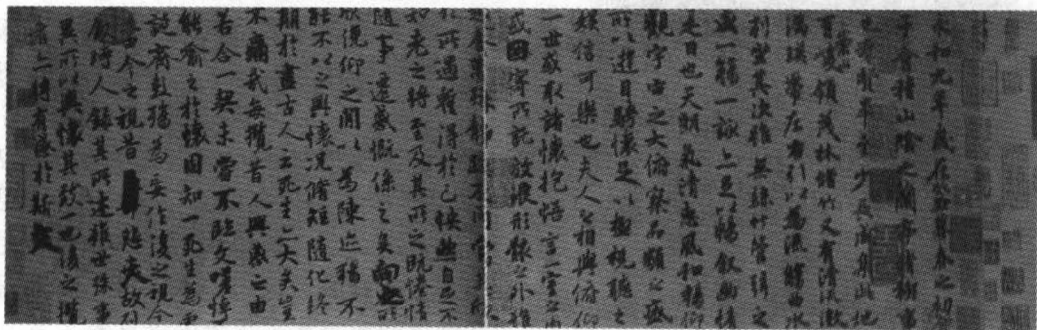 永和九年歲在癸丑暮春之初
于會稽山陰之蘭亭脩稧事
也群賢畢至少長咸集此地
有崇山峻領茂林脩竹又有清流激
湍暎帶左右引以為流觴曲水
列坐其次雖無絲竹管弦之
盛一觴一詠亦足以暢敘幽情
是日也天朗氣清惠風和暢仰
觀宇宙之大俯察品類之盛
所以遊目騁懷足以極視聽之
娛信可樂也夫人之相與俯仰
一世或取諸懷抱悟言一室之內
或因寄所託放浪形骸之外雖
趣舍萬殊靜躁不同當其欣
於所遇暫得於己怏然自足不
知老之將至及其所之既惓情
隨事遷感慨係之矣向之所
欣俛仰之閒以為陳迹猶不
能不以之興懷況脩短隨化終
期於盡古人云死生亦大矣豈
不痛哉每攬昔人興感之由
若合一契未嘗不臨文嗟悼
能喻之於懷固知一死生為虛
誕齊彭殤為妄作後之視今
亦由今之視昔悲夫故列
敘時人錄其所述雖世殊事
異所以興懷其致一也後之攬
者亦將有感於斯文